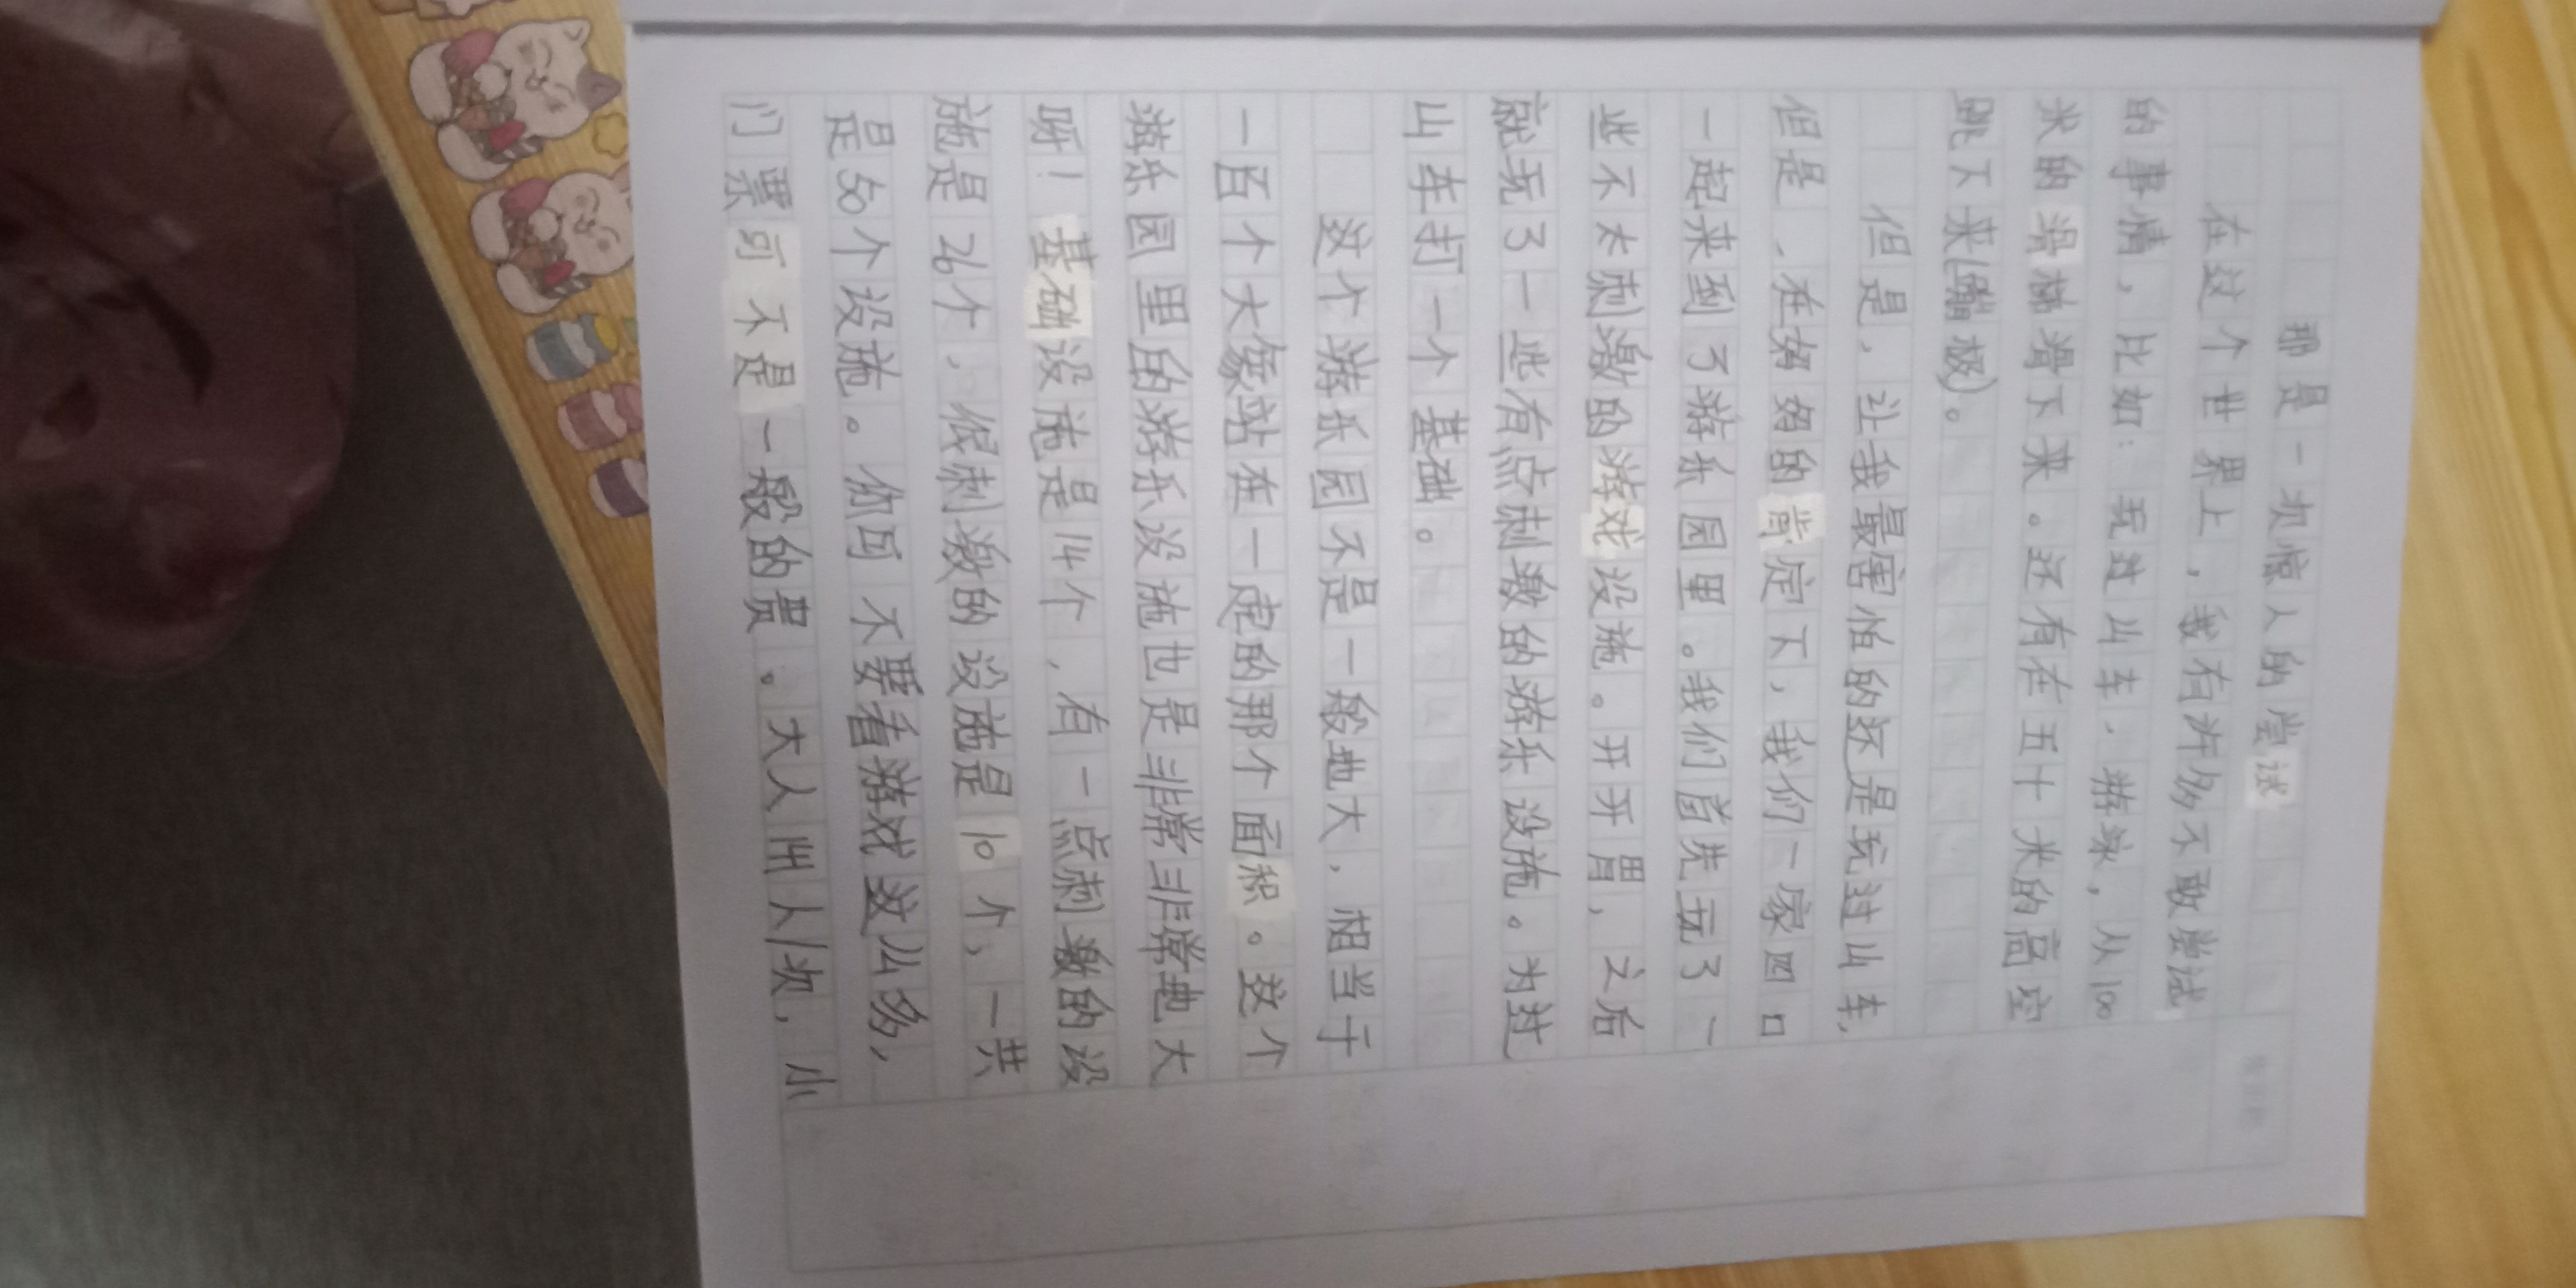 那是一次惊人的尝试
在这个世界上，我有许多不敢尝试
的事情，比如：玩过山车、游泳，从100
米的滑梯滑下来。还有在五十米的高空
跳下来(蹦极)。
但是，让我最害怕的还是玩过山车，
但是、在妈妈的肯定下，我们一家四口
一起来到了游乐园里。我们首先玩了一
些不太刺激的游戏设施。开开胃，之后
就玩了一些有点刺激的游乐设施。为过
山车打一个基础。
这个游乐园不是一般地大，相当于
一百个大象站在一定的那个面积。这个
游乐园里的游乐设施也是非常非常地大
呀！基础设施是14个，有一点刺激的设
施是26个，很刺激的设施是10个，一共
是50个设施。你可不要看游戏这么多，
门票可不是一般的贵。大人 人/次，小